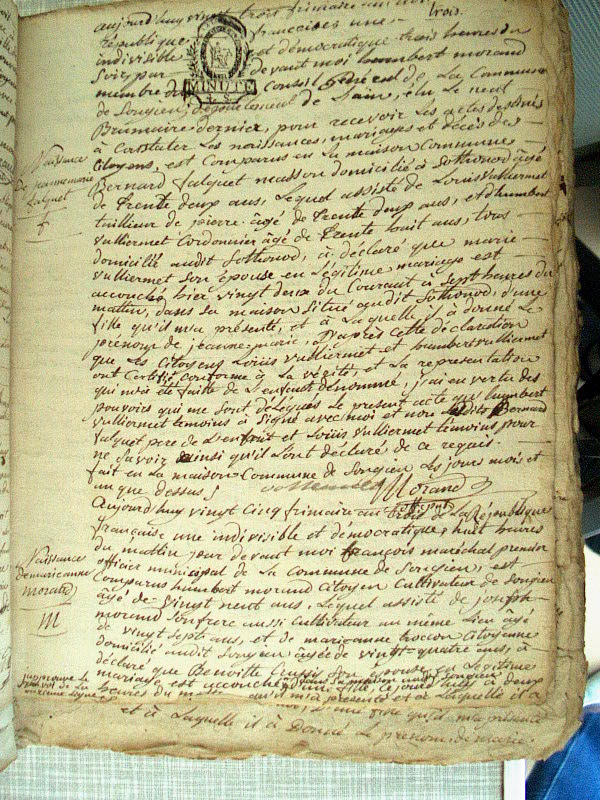 aujourd'huy vingt trois frimaire an trois
république française une
indivisible et démocratique trois heures du
soir, par devant moi humbert morand
membre du Conseil Général de La Commune
MINUTE
de Songieu, département de Lain, élu le neuf
Brumaire dernier, pour recevoir les actes destinés
à Constater Les naissances, mariages et décès des
Citoyens, est Comparus en La maison Commune
Bernard falquet masson domicilié à Sothonod âgé
de Trente deux ans, Lequel assisté de Louis Vulliermet
taillieur de pierre âgé de Trente deux ans, et d'humbert
Vulliermet Cordonnier âgé de Trente huit ans, tous
domicilié audit Sothonod, à déclaré que marie
Vulliermet Son épouse en Légitime mariage est
accouché hier vingt deux du Courant à Sept heures du
mattin, dans sa maison Situé audit Sothonod, d'une
fille qu'il m'a présenté, et à Laquelle il à donné Le
prenom de jeanne-marie, D'après cette déclaration
que les Citoyens Louis Vulliermet et humbert Vulliermet
ont Certifié Conforme à La vérité, et La représentation
qui m'a été faite de L'enfant dénommé, j'ai en vertu des
pouvoirs qui me sont délégués Le présent acte que humbert
Vulliermet temoins à Signé avec moi et non Bernard
falquet pere de L'enfant et Louis Vulliermet temoins pour
ne Savoir ainsi qu'il sont déclaré de ce requis.
fait en La maison Commune de Songieu Les jours mois et
an que dessus /
Morand
Naissance
De jeanne marie
falquet
Aujourd'huy vingt Cinq frimaire an trois de La République
française une indivisible et démocratique, huit heures
du mattin pardevant moi françois maréchal premier
officier municipal de La Commune de Songieu, est
Comparus humbert morand Citoyen Cultivateur de Songieu
âgé de vingt neuf ans, Lequel assisté de joseph
morand Son frere aussi Cultivateur au même Lieu âgé
de vingt Sept ans, et de marianne Citoyenne
domicilié audit Songieu âgée de vingt-quatre ans, à
déclaré que Benoitte Son épouse en Légitime
mariage est accouchée dans sa maison audit Songieu
d'une fille, Ce jourd'huy à deux
heures du mattin qu'il m'a présenté et à Laquelle il a
Naissance
de marianne
morand
et à Laquelle il à Donné Le prenom de marie